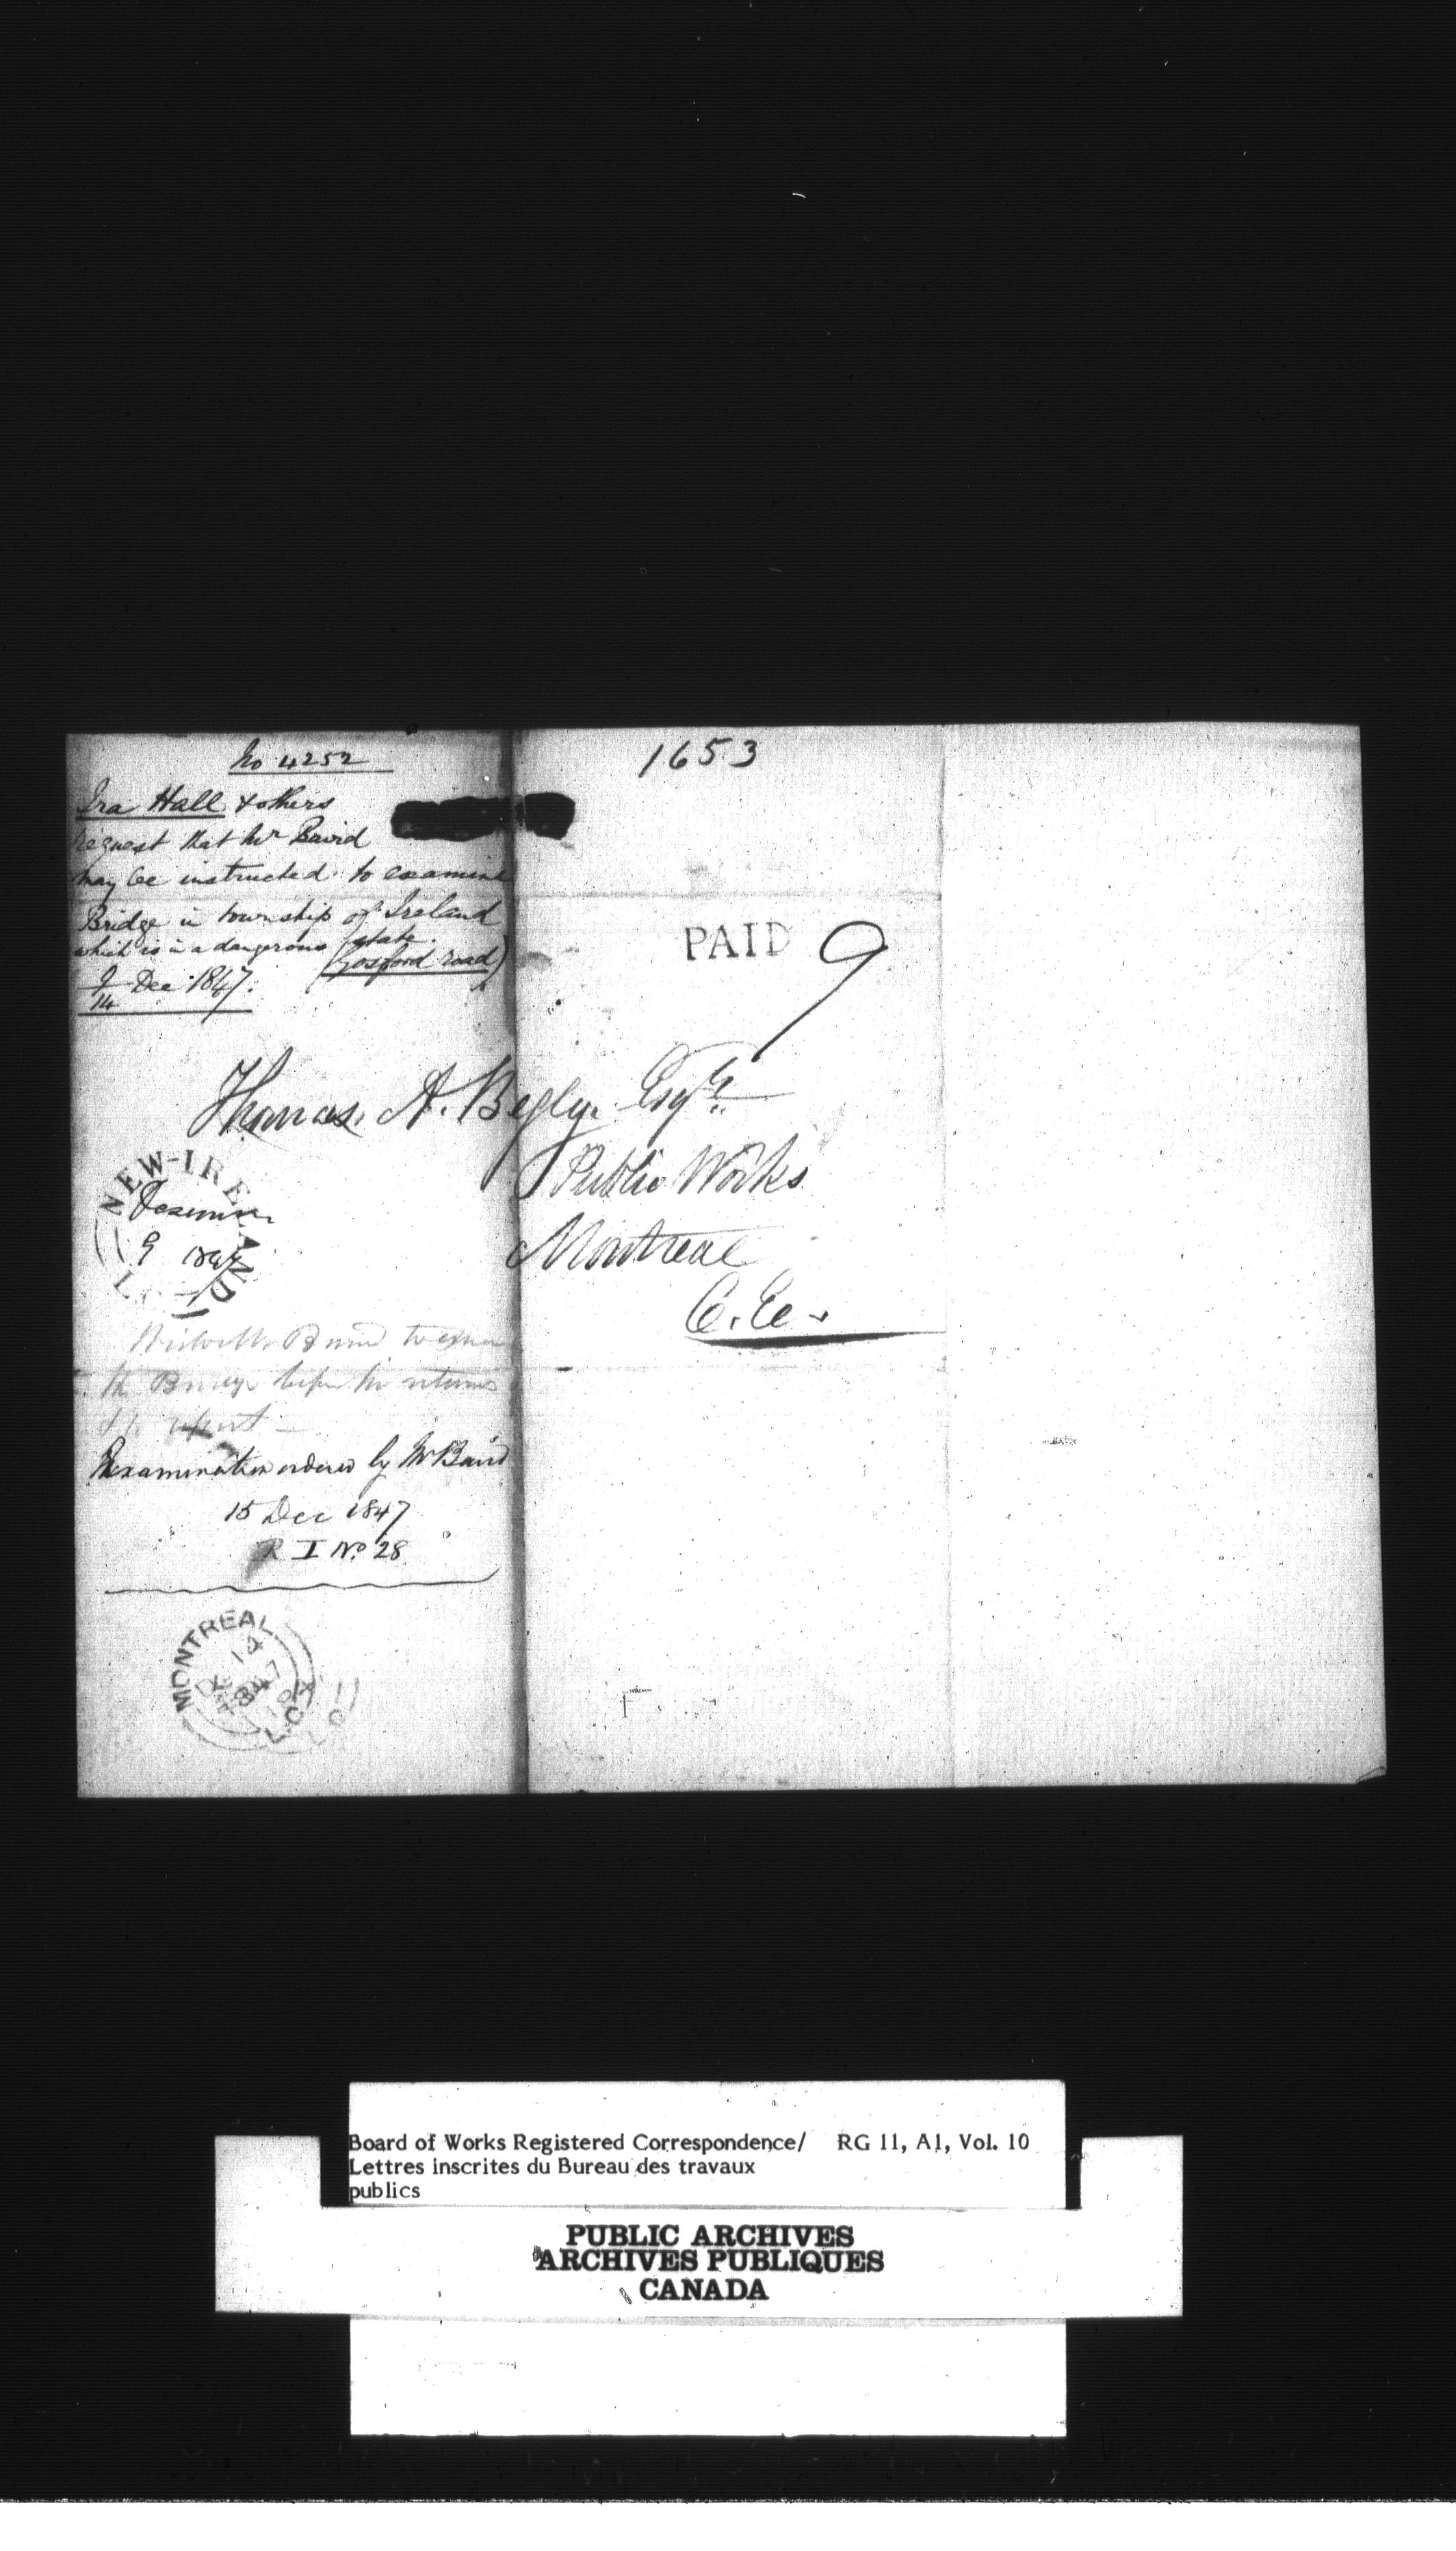 No 4252
Ira Hall & others
request that Mr Baird
may be instructed to examine
Bridge in township of Ireland
which is in a dangerous state.
(Gosford road)
9 Dec 1847.
14
1653
PAID 9
Thomas A. Begly. Esqre
Public Works
Montreal
C. E.
NEW-IRELAND
December
9 1847
Baird to
the Bridge before he returns
Examination ordered by Mr Baird
15 Dec 1847
R I No 28
MONTREAL
DE 14
1847
L.C.
Board of Works Registered Correspondence/ RG 11, A1, Vol. 10
Lettres inscrites du Bureau des travaux
publics
PUBLIC ARCHIVES
ARCHIVES PUBLIQUES
CANADA